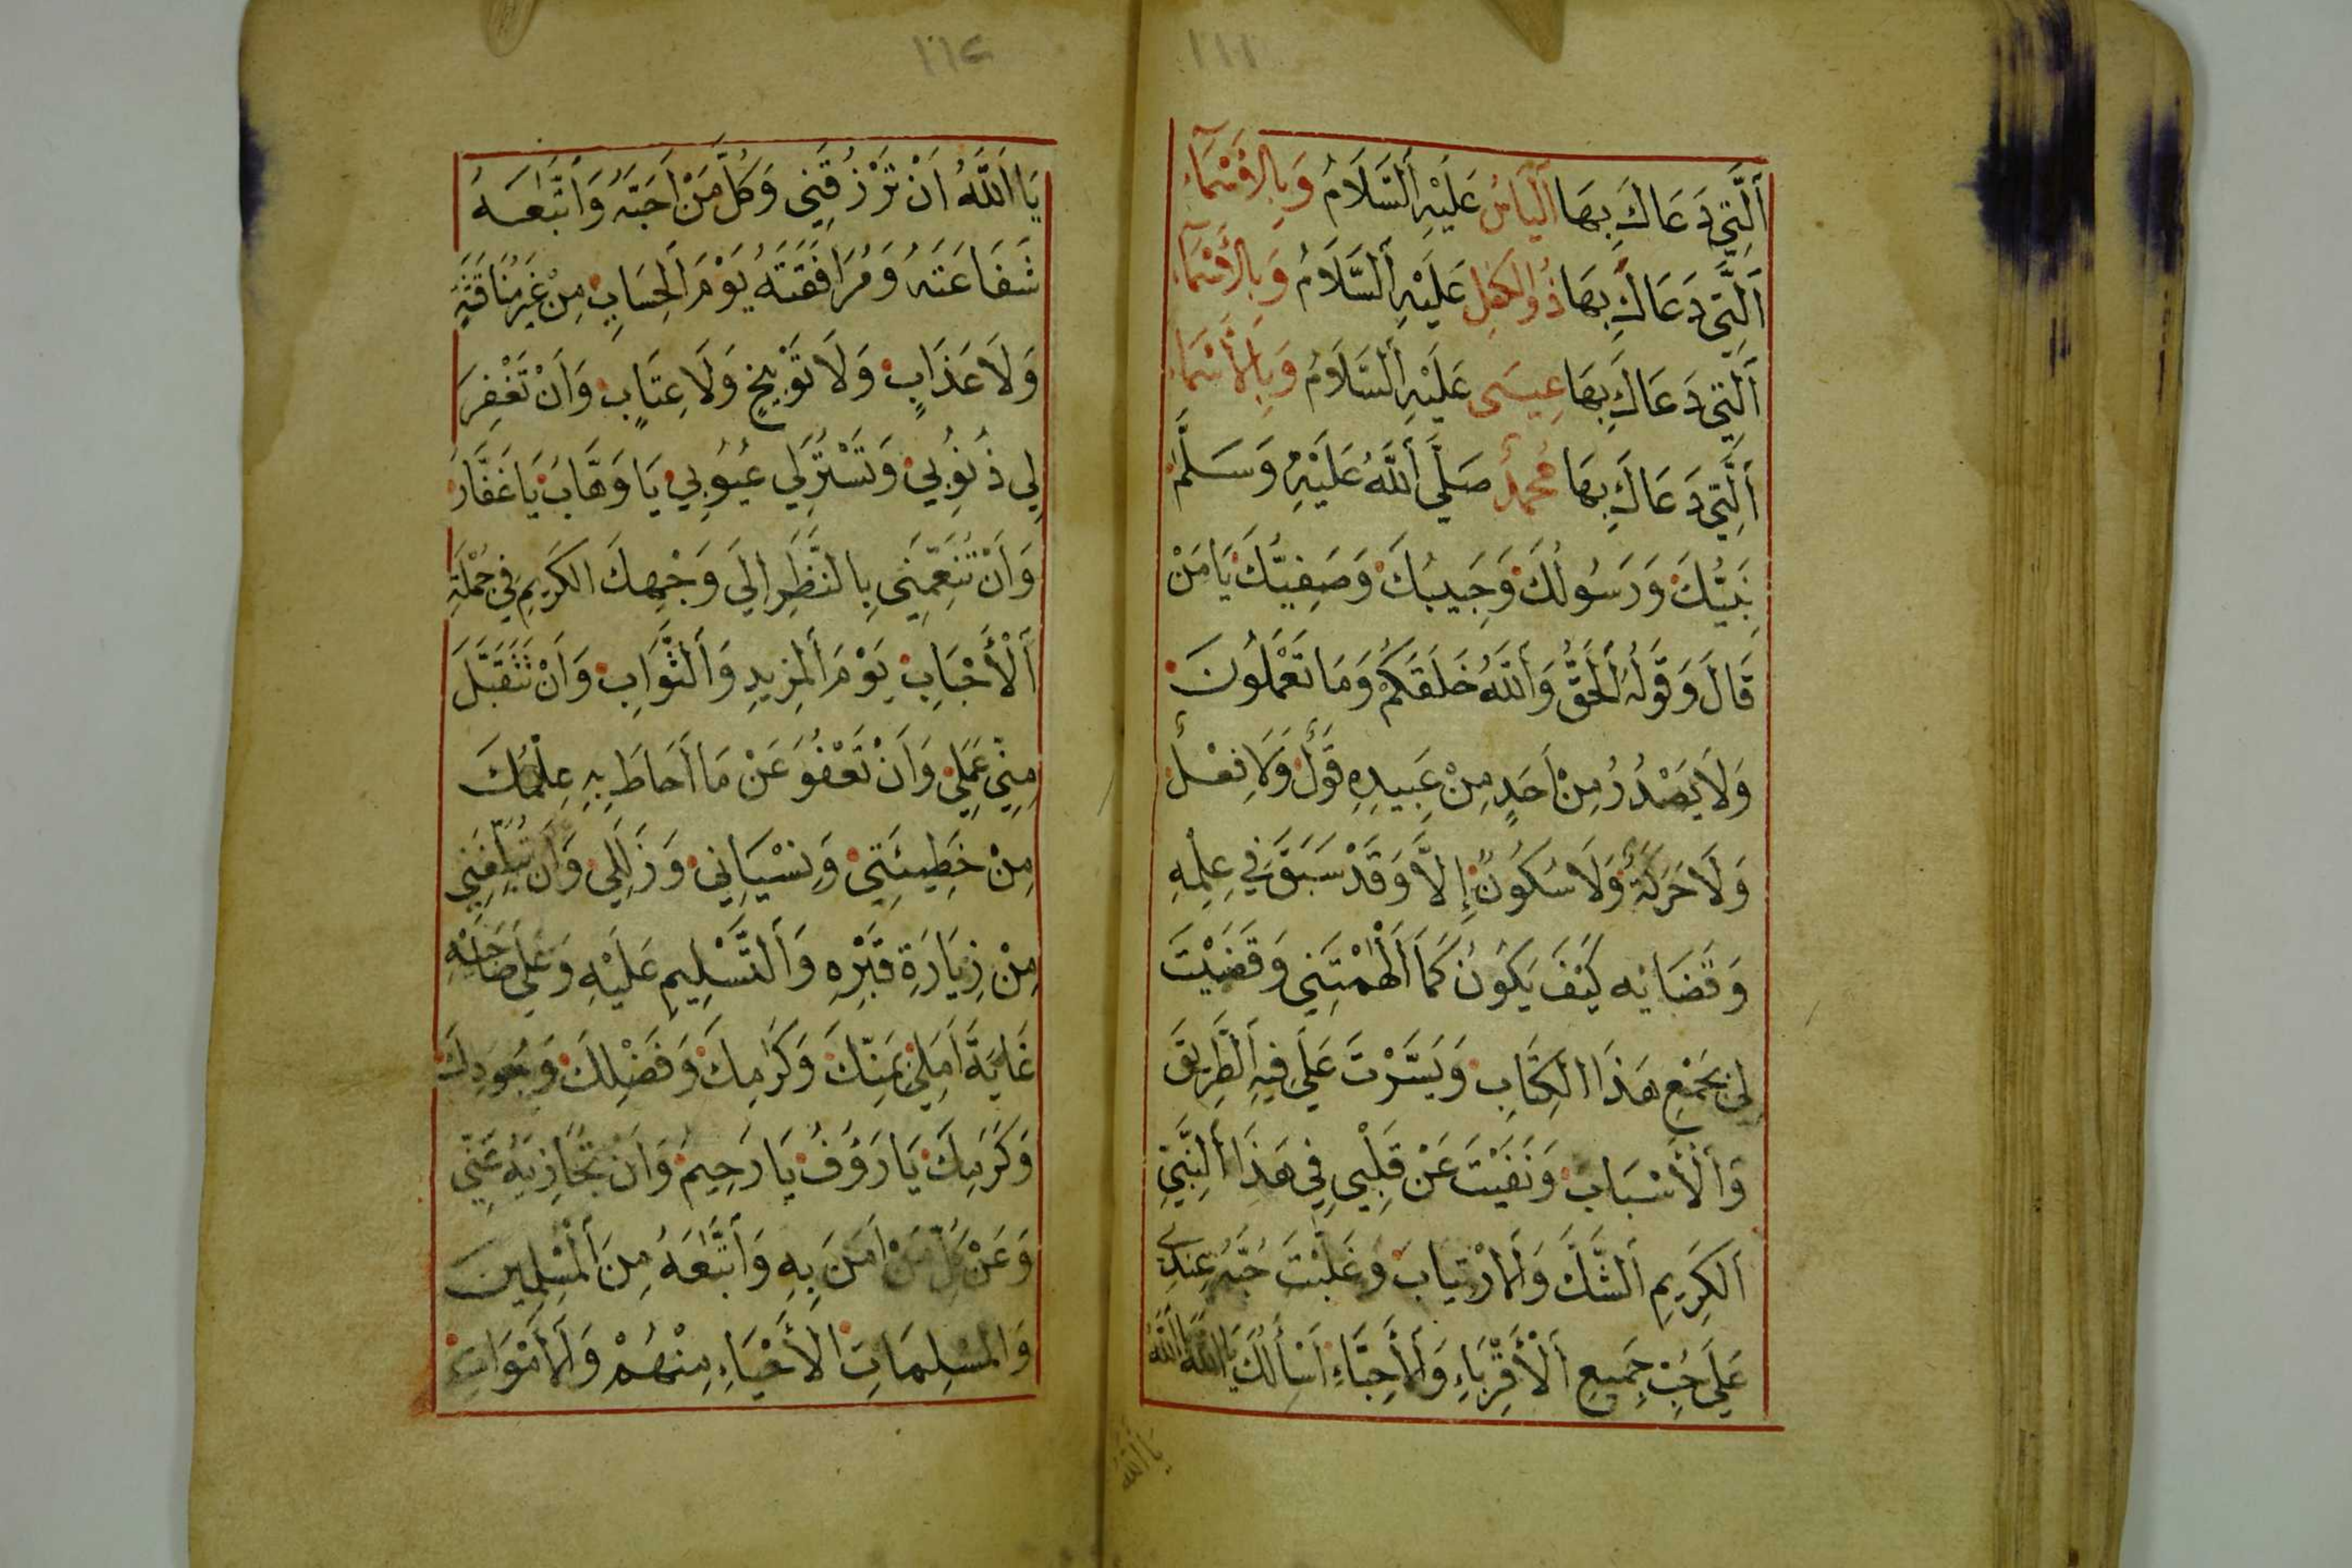 ١١١
اَلَّتِي دَعَاكَ بِهَا اَلْيَاسُ عَلَيْهِ اَلسَّلَامُ وَبِالْاَسْمَاءِ
اَلَّتِي دَعَاكَ بِهَا ذُوالْكِفْلِ عَلَيْهِ اَلسَّلَامُ وَبِالْاَسْمَاءِ
اَلَّتِي دَعَاكَ بِهَا عِيسَى عَلَيْهِ اَلسَّلَامُ وَبِالْاَسْمَاءِ
اَلَّتِي دَعَاكَ بِهَا مُحَمَّدٌ صَلَّى اَللَّهُ عَلَيْهِ وَسَلَّمَ
نَبِيُّكَ وَرَسُولُكَ وَحَبِيبُكَ وَصَفِيُّكَ يَا مَنْ
قَالَ وَقَوْلُهُ اَلْحَقُّ وَاَللَّهُ خَلَقَكُمْ وَمَا تَعْمَلُونَ
وَلَا يَصْدُرُ مِنْ اَحَدٍ مِنْ عَبِيدِهِ قَوْلٌ وَلَا فِعْلٌ
وَلَا حَرَكَةٌ وَلَا سُكُونٌ إِلَّا وَقَدْ سَبَقَ فِي عِلْمِهِ
وَقَضَائِهِ كَيْفَ يَكُونُ كَمَا اَلْهَمْتَنِي وَقَضَيْتَ
لِي بِجَمْعِ هَذَا الْكِتَابِ وَيَسَّرْتَ عَلَيَّ فِيهِ اَلطَّرِيقَ
وَاَلْأَسْبَابَ وَنَفَيْتَ عَنْ قَلْبِي فِي هَذَا اَلنَّبِيِّ
اَلْكَرِيمِ اَلشَّكَّ وَاَلْارْتِيَابَ وَغَلَّبْتَ حُبَّهُ عِنْدِي
عَلَى حُبِّ جَمِيعِ اَلْأَقْرِبَاءِ وَاَلْأَحِبَّاءِ اَسْأَلُكَ يَا اَللَّهُ يَا اَللَّهُ
يَا اَللَّهُ
١١٢
يَا اَللَّهُ اَنْ تَرْزُقَنِي وَكُلَّ مَنْ اَحَبَّهُ وَاَتَّبَعَهُ
شَفَاعَتَهُ وَمُرَافَقَتَهُ يَوْمَ اَلْحِسَابِ مِنْ غَيْرِ مُنَاقَشَةٍ
وَلَا عَذَابٍ وَلَا تَوْبِيخٍ وَلَا عِتَابٍ وَاَنْ تَغْفِرَ
لِي ذُنُوبِي وَتَسْتُرَ لِي عُيُوبِي يَا وَهَّابُ يَا غَفَّارُ
وَاَنْ تُنَعِّمَنِي بِالنَّظَرِ اِلَى وَجْهِكَ الْكَرِيمِ فِي جُمْلَةِ
اَلْأَحْبَابِ يَوْمَ اَلْمَزِيدِ وَاَلثَّوَابِ وَاَنْ تَتَقَبَّلَ
مِنِّي عَمَلِي وَاَنْ تَعْفُوَ عَنْ مَا اَحَاطَ بِهِ عِلْمُكَ
مِنْ خَطِيئَتِي وَنِسْيَانِي وَزَلَلِي وَاَنْ تُبَلِّغَنِي
مِنْ زِيَارَةِ قَبْرِهِ وَاَلتَّسْلِيمِ عَلَيْهِ وَعَلَى صَاحِبَيْهِ
غَايَةَ اَمَلِي بِمَنِّكَ وَكَرَمِكَ وَفَضْلِكَ وَجُودِكَ
وَكَرَمِكَ يَا رَؤُفُ يَا رَحِيمُ وَاَنْ تُجَازِيَهُ عَنِّي
وَعَنْ كُلِّ مَنْ اَمَنَ بِهِ وَاَتَّبَعَهُ مِنَ اَلْمُسْلِمِينَ
وَالْمُسْلِمَاتِ الْأَحْيَاءِ مِنْهُمْ وَاَلْاَمْوَاتِ